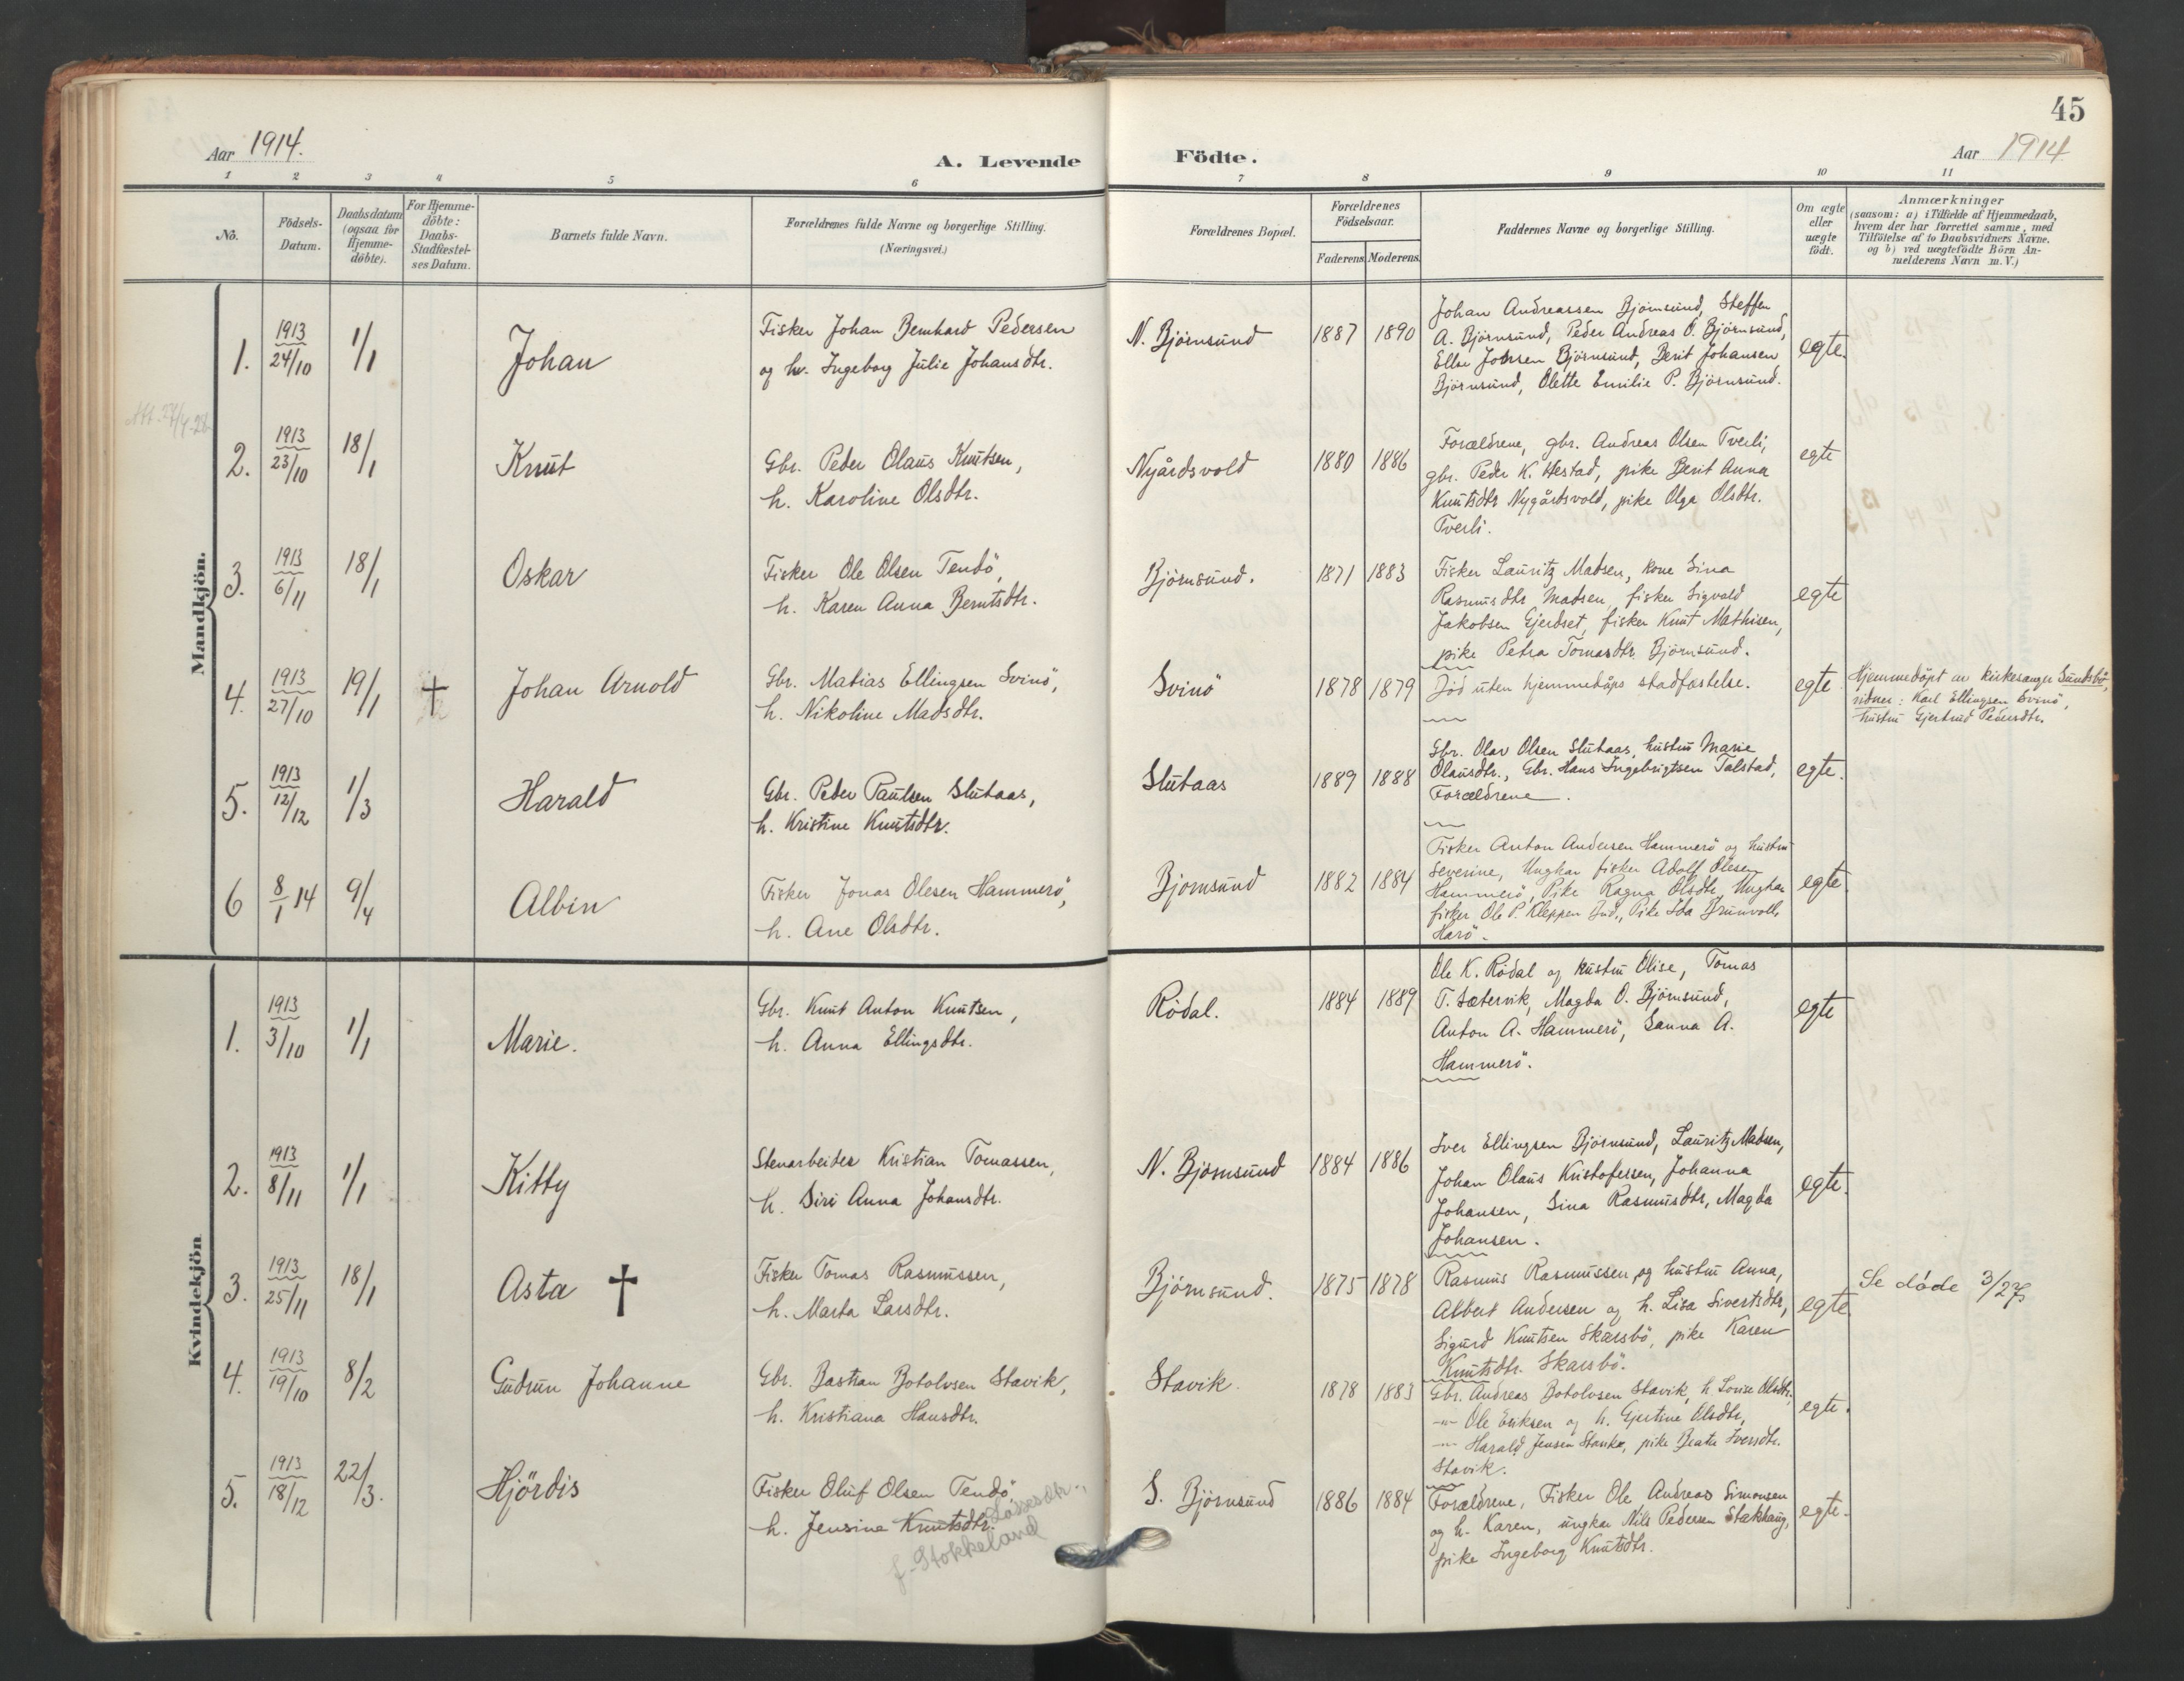 45
Aar 1914.
A. Levende Födte.
Aar 1914
1 2 3 4 5 6 7 8 9 10 11
No.
Födsels-
Datum.
Daabsdatum
(ogsaa for
Hjemme-
döbte).
For Hjemme-
döbte:
Daabs-
Stadfæstel-
ses Datum.
Barnets fulde Navn.
Forældrenes fulde Navne og borgerlige Stilling.
(Næringsvei.)
Forældrenes Bopæl.
Forældrenes
Födselsaar.
Faderens. Moderens.
Faddernes Navne og borgerlige Stilling.
Om ægte
eller
uægte
födt.
Anmærkninger
(saasom: a) i Tilfælde af Hjemmedaab,
hvem der har forrettet samme, med
Tilföielse af to Daabsvidners Navne.
og b) ved uægtefödte Börn An-
melderens Navn m. V.)
Mandkjön.
1.
1913
24/10
1/1
Johan
Fisker Johan Bernhard Pedersen
og hv. Ingeborg Julie Johansdtr.
N. Björnsund
1887 1890
Johan Andreassen Björnsund, Steffen
A. Björnsund, Peder Andreas O. Björnsund,
Ellse Johnsen Björnsund, Berit Johansen
Björnsund, Olette Emilie P. Björnsund.
egte.
Att. 27/4-28
2.
1913
23/10
18/1
Knut
Gbr. Peder Olaus Knutsen,
h. Karoline Olsdtr.
Nyårdsvold
1880 1886
Forældrene, gbr. Andreas Olsen Tverli,
gbr. Peder K. Hestad, pike Berit Anna
Knutsdtr Nygårdsvold, pike Olga Olsdtr.
Tverli.
egte
3.
1913
6/11
18/1
Oskar
Fisker Ole Olsen Tendö,
h. Karen Anna Berntsdtr.
Björnsund.
1871 1883
Fisker Lauritz Madsen, kone Sina
Rasmusdtr Madsen, fisker Sigvald
Jakobsen Gjerdset, fisker Knut Mathisen,
pike Petra Tomasdtr. Björnsund.
egte
4.
1913
27/10
19/1
†
Johan Arnold
Gbr. Matias Ellingsen Svinö,
h. Nikoline Madsdtr.
Svinö
1878 1879
Död uten hjemmedåps stadfæstelse.
egte
Hjemmedöpt av kirkesanger Sundsbö,
vidner: Karl Ellingsen Svinö,
hustru Gjertrud Pedersdtr.
5.
1913
12/12
1/3
Harald
Gbr. Peder Paulsen Slutaas,
h. Kristine Knutsdtr.
Slutaas
1889 1888
Gbr. Olav Olsen Slutaas, hustru Marie
Olausdtr., Gbr. Hans Ingebrigtsen Talstad,
Forældrene.
egte.
6
8/1 14
9/4
Albin
Fisker Jonas Olesen Hammerö,
h. Ane Olsdtr.
Björnsund
1882 1884
Fisker Anton Andersen Hammerö og hustru
Severine, Ungkar fisker Adolf Olesen
Hammerö, Pike Ragna Olsdtr, Ungkar
fisker Ole P. Kleppen Bud, Pike Ida Brunvoll,
Harö.
egte.
Kvindekjön
1.
1913
3/10
1/1
Marie.
Gbr. Knut Anton Knutsen,
h. Anna Ellingsdtr.
Rödal.
1884 1889
Ole K. Rödal og hustru Olise, Tomas
T. Sætervik, Magda O. Björnsund,
Anton A. Hammerö, Sanna A.
Hammerö.
egte
2.
1913
8/11
1/1
Kitty
Stenarbeider Kristian Tomassen,
h. Siri Anna Johansdtr.
N. Björnsund
1884 1886
Iver Ellingsen Björnsund, Lauritz Madsen,
Johan Olaus Kristofersen, Johanna
Johansen, Sina Rasmusdtr, Magda
Johansen.
egte.
3.
1913
25/11
18/1
Asta †
Fisker Tomas Rasmussen,
h. Marta Larsdtr.
Björnsund.
1875 1878
Rasmus Rasmussen og hustru Anna,
Albert Andersen og h. Lisa Sivertsdtr,
Sigurd Knutsen Skarsbö, pike Karen
Knutsdtr. Skarsbö.
egte.
Se döde 3/27
4.
1913
19/10
8/2
Gudrun Johanne
Gbr. Bastian Botolvsen Stavik,
h. Kristiana Hansdtr.
Stavik.
1878 1883
Gbr. Andreas Botolvsen Stavik, h. Lovise Olsdtr,
-"- Ole Eriksen og h. Gjertine Olsdtr,
-"- Harald Jensen Stavik, pike Beate Iversdtr.
Stavik.
egte.
5.
1913
18/12
22/3.
Hjördis
Fisker Oluf Olsen Tendö
h. Jensine Knutsdtr. Lassesdtr.,
f. Stokkeland
S. Björnsund
1886 1884
Forældrene, Fisker Ole Andreas Simonsen
og h. Karen, ungkar Nils Pedersen Stakhaug,
pike Ingeborg Knutsdtr.
egte.